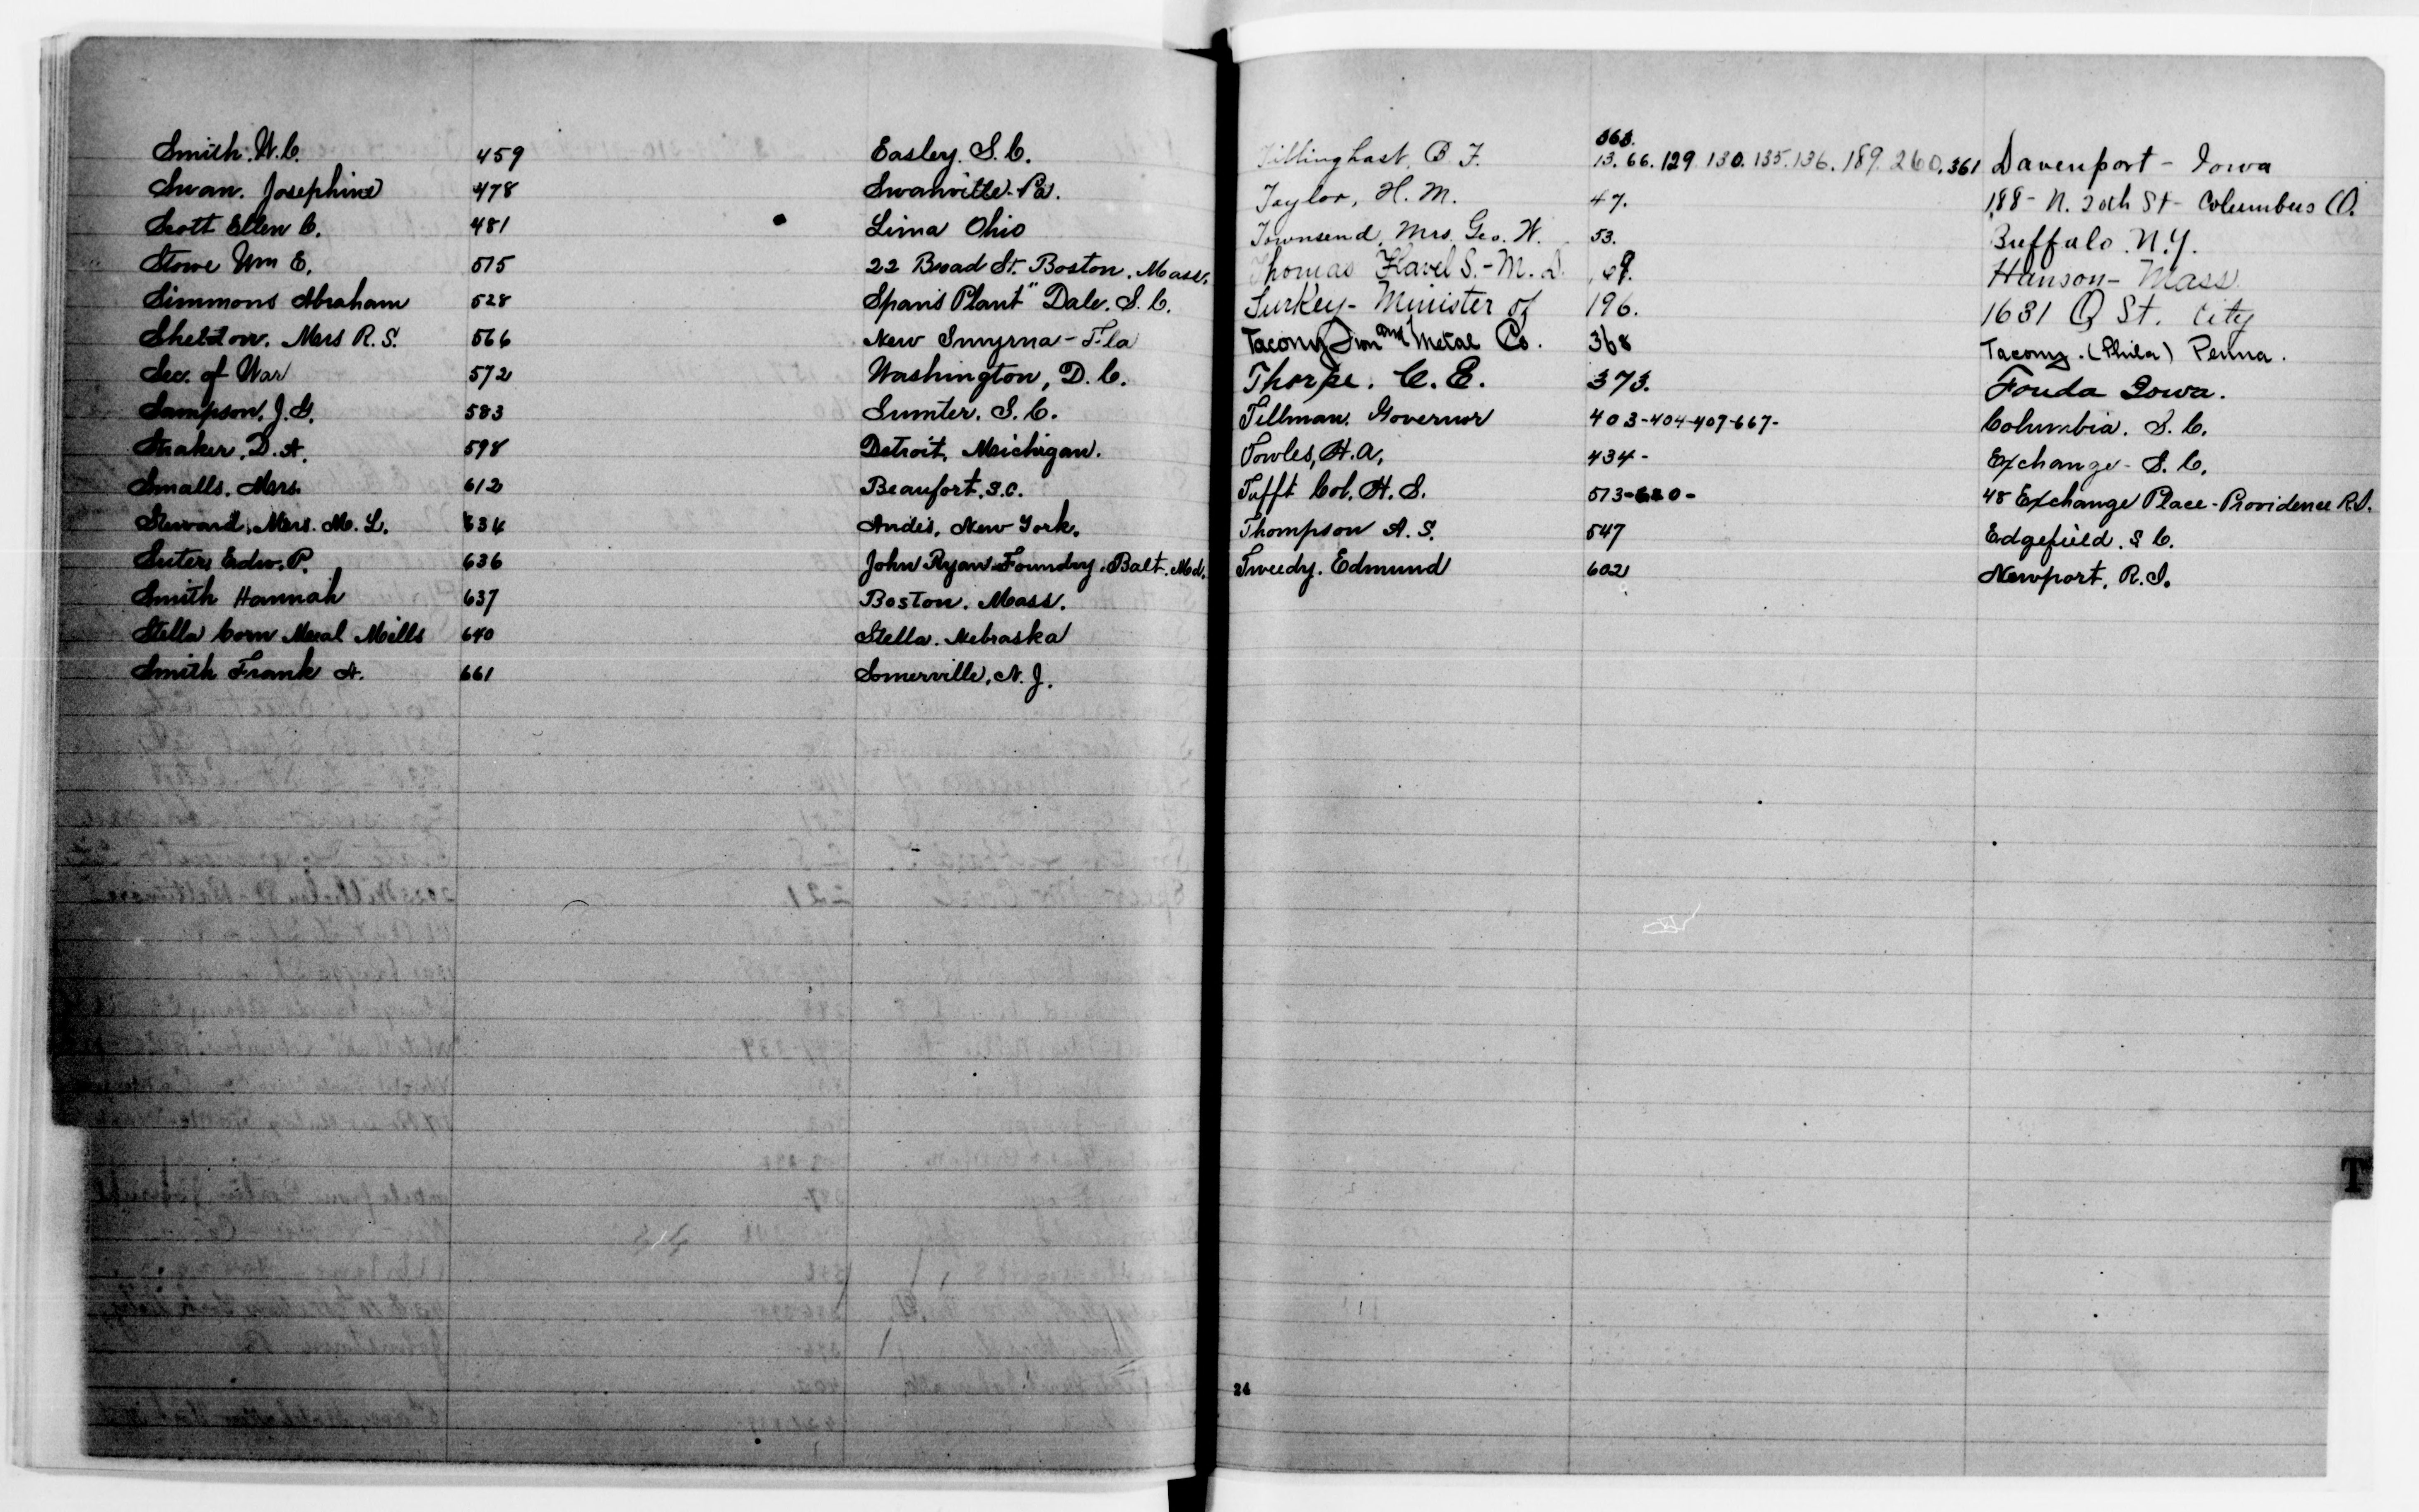 Smith. W. C. 459 Easley. S. C.
Swan. Josephine 478 Swanville - Pa.
Scott Ellen C. 481 Lima Ohio
Stowe Wm E. 515 22 Broad St. Boston. Mass.
Simmons Abraham 528 Span's Plant" Dale. S. C.
Sheldon. Mrs R. S. 566 New Smyrna - Fla
Sec. of War 572 Washington, D. C.
Sampson. J. G. 583 Sumter. S. C.
Straker. D. A. 598 Detroit, Michigan.
Smalls. Mrs. 612 Beaufort, S.C.
Steward, Mrs. M. L. 634 Andes, New York.
Suter, Edw. P. 636 John Ryan Foundry. Balt. Md.
Smith Hannah 637 Boston. Mass.
Stella Corn Meal Mills 640 Stella. Nebraska
Smith Frank A. 661 Somerville, N. J.
363.
Tillinghast, B F. 13. 66. 129. 130. 135. 136. 189. 260. 361 Davenport - Iowa
Taylor, H. M. 47. 188 - N. 20th St - Columbus O.
Townsend, Mrs. Geo. W. 53. Buffalo. N.Y.
Thomas Flavel S. - M. D. 69. Hanson - Mass
Turkey - Minister of 196. 1631 Q St. City
Tacony Iron and Metal Co. 368 Tacony. (Phila) Penna.
Thorpe. C. E. 373. Fonda Iowa.
Tillman. Governor 403-404-407-667- Columbia. S. C.
Towles, H. A. 434- Exchange - S. C.
Tafft Col. H. S. 573-620- 48 Exchange Place - Providence R.I.
Thompson A. S. 547 Edgefield. S C.
Tweedy. Edmund 602 Newport, R. I.
T
24